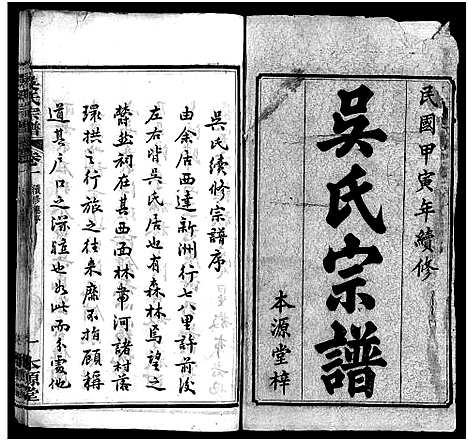 民國甲寅年續修
吳氏宗譜
本源堂梓
吳氏續修宗譜序
由余居西達新洲行七八里許前後
左右皆吳氏居也有森林焉望之
蔚然祠在其西西林帶河諸村落
環拱之行旅之往來靡不指顧稱
道其戶口之深殖也如此而分處他
吳氏宗譜
卷一
續修總序
一
本源堂